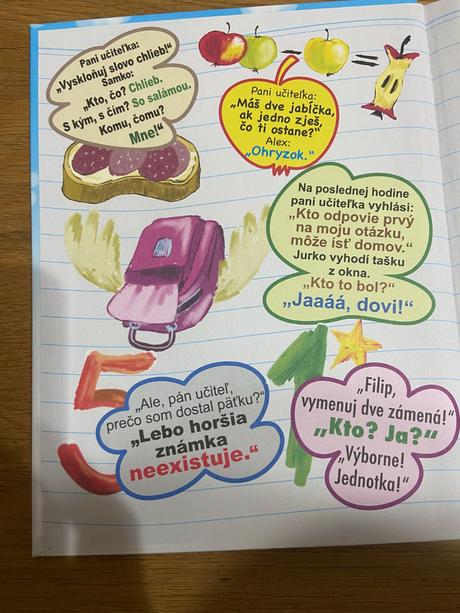 Pani učiteľka:
„Vyskloňuj slovo chlieb!“
Samko:
„Kto, čo? Chlieb.
S kým, s čím? So salámou.
Komu, čomu?
Mne!“
Pani učiteľka:
„Máš dve jabĺčka,
ak jedno zješ,
čo ti ostane?“
Alex:
„Ohryzok.“
Na poslednej hodine
pani učiteľka vyhlási:
„Kto odpovie prvý
na moju otázku,
môže ísť domov.“
Jurko vyhodí tašku
z okna.
„Kto to bol?“
„Jaááá, dovi!“
5
„Ale, pán učiteľ,
prečo som dostal päťku?“
„Lebo horšia
známka
neexistuje.“
1
„Filip,
vymenuj dve zámená!“
„Kto? Ja?“
„Výborne!
Jednotka!“